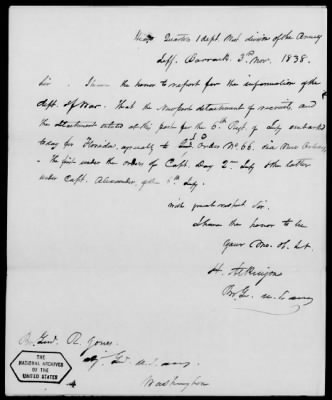 Head Quarters 1 dept. Wst. division of the Army
Jeff. Barracks 3rd Nov. 1838.
Sir. I have the honor to report for the information of the
dept. of War. That the New York detachment of recruits, and
the detachment enlisted at this post for the 6th Regt. of Infy embarked
today for Florida, agreeably to Genl. Order No. 66, via New Orleans,
The first under the orders of Capt. Day 2nd Infy & the latter
under Capt. Alexander, of the 6th Infy.
with great respect Sir,
I have the honor to be
Your Mo. ob. St.
H. Atkinson
Br. Gl. U.S. army
Br. Genl. R. Jones.
Adj. Genl. U.S. army
Washington
THE
NATIONAL ARCHIVES
OF THE
UNITED STATES